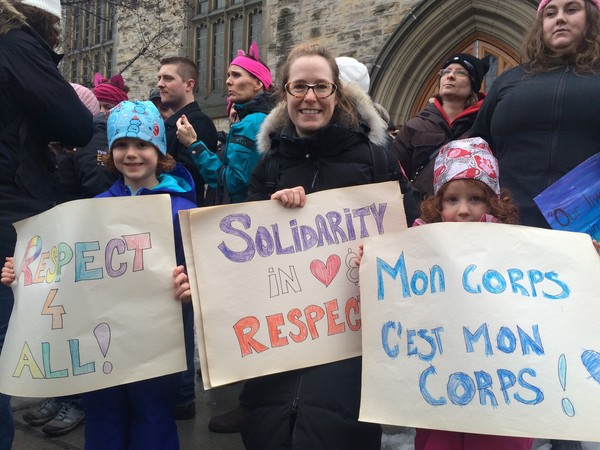 RESPECT
4
ALL!
SOLIDARITY
IN ♥ &
RESPECT
MON CORPS
C'EST MON
CORPS!
"Our